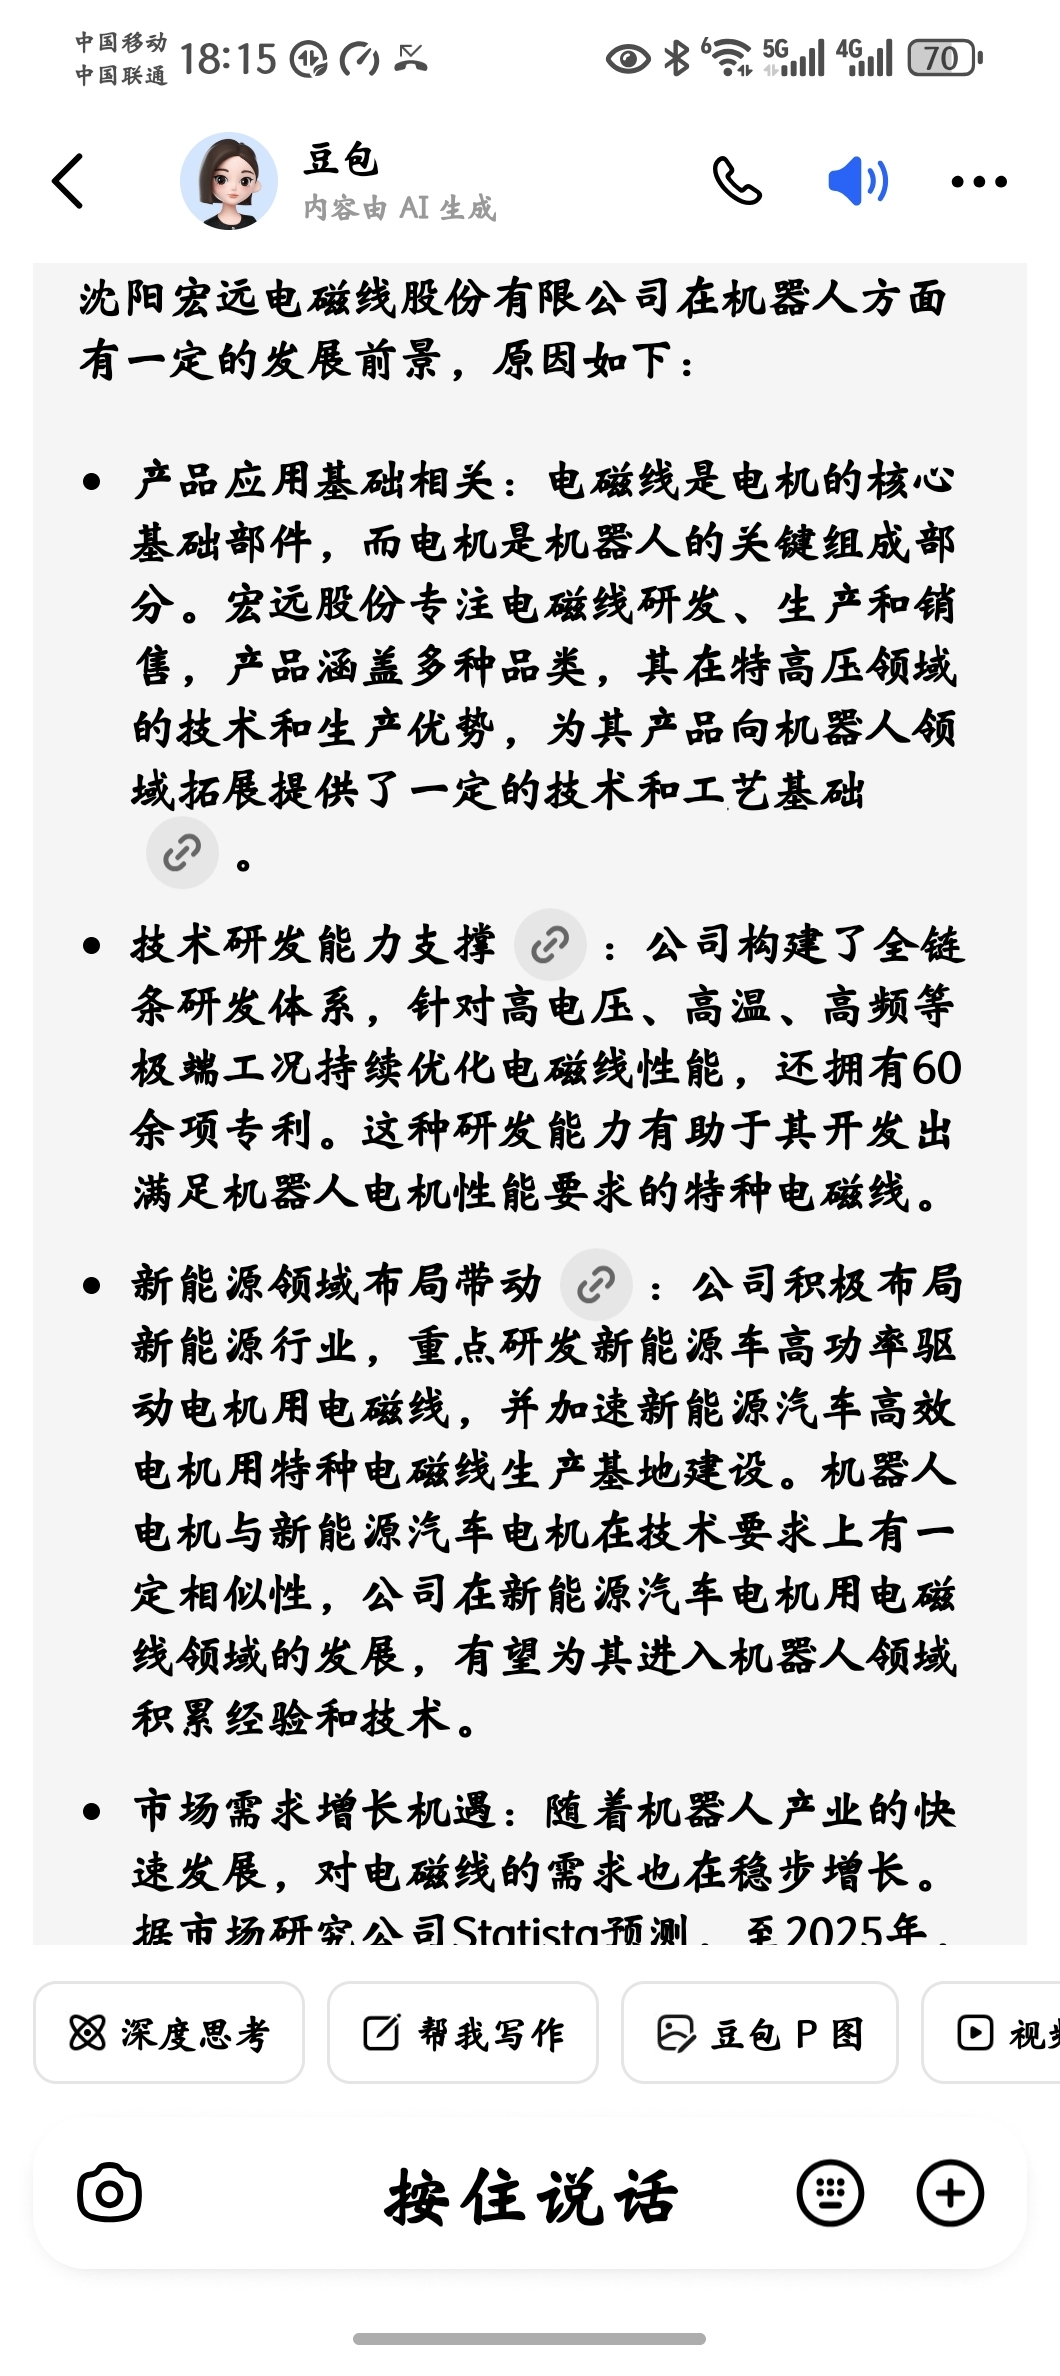 中国移动
中国联通
18:15
6
5G
4G
70
豆包
内容由 AI 生成
沈阳宏远电磁线股份有限公司在机器人方面
有一定的发展前景，原因如下：
• 产品应用基础相关：电磁线是电机的核心
基础部件，而电机是机器人的关键组成部
分。宏远股份专注电磁线研发、生产和销
售，产品涵盖多种品类，其在特高压领域
的技术和生产优势，为其产品向机器人领
域拓展提供了一定的技术和工艺基础
。
• 技术研发能力支撑 ：公司构建了全链
条研发体系，针对高电压、高温、高频等
极端工况持续优化电磁线性能，还拥有60
余项专利。这种研发能力有助于其开发出
满足机器人电机性能要求的特种电磁线。
• 新能源领域布局带动 ：公司积极布局
新能源行业，重点研发新能源车高功率驱
动电机用电磁线，并加速新能源汽车高效
电机用特种电磁线生产基地建设。机器人
电机与新能源汽车电机在技术要求上有一
定相似性，公司在新能源汽车电机用电磁
线领域的发展，有望为其进入机器人领域
积累经验和技术。
• 市场需求增长机遇：随着机器人产业的快
速发展，对电磁线的需求也在稳步增长。
据市场研究公司Statista预测，至2025年，
深度思考
帮我写作
豆包 P 图
视频
按住说话